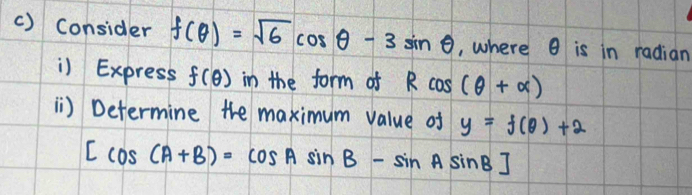 c) Consider f(θ) = √6 cos θ - 3 sin θ, where θ is in radian
i) Express f(θ) in the form of R cos (θ + α)
ii) Determine the maximum value of y = f(θ) + 2
[ cos (A+B) = cos A sin B - sin A sin B ]